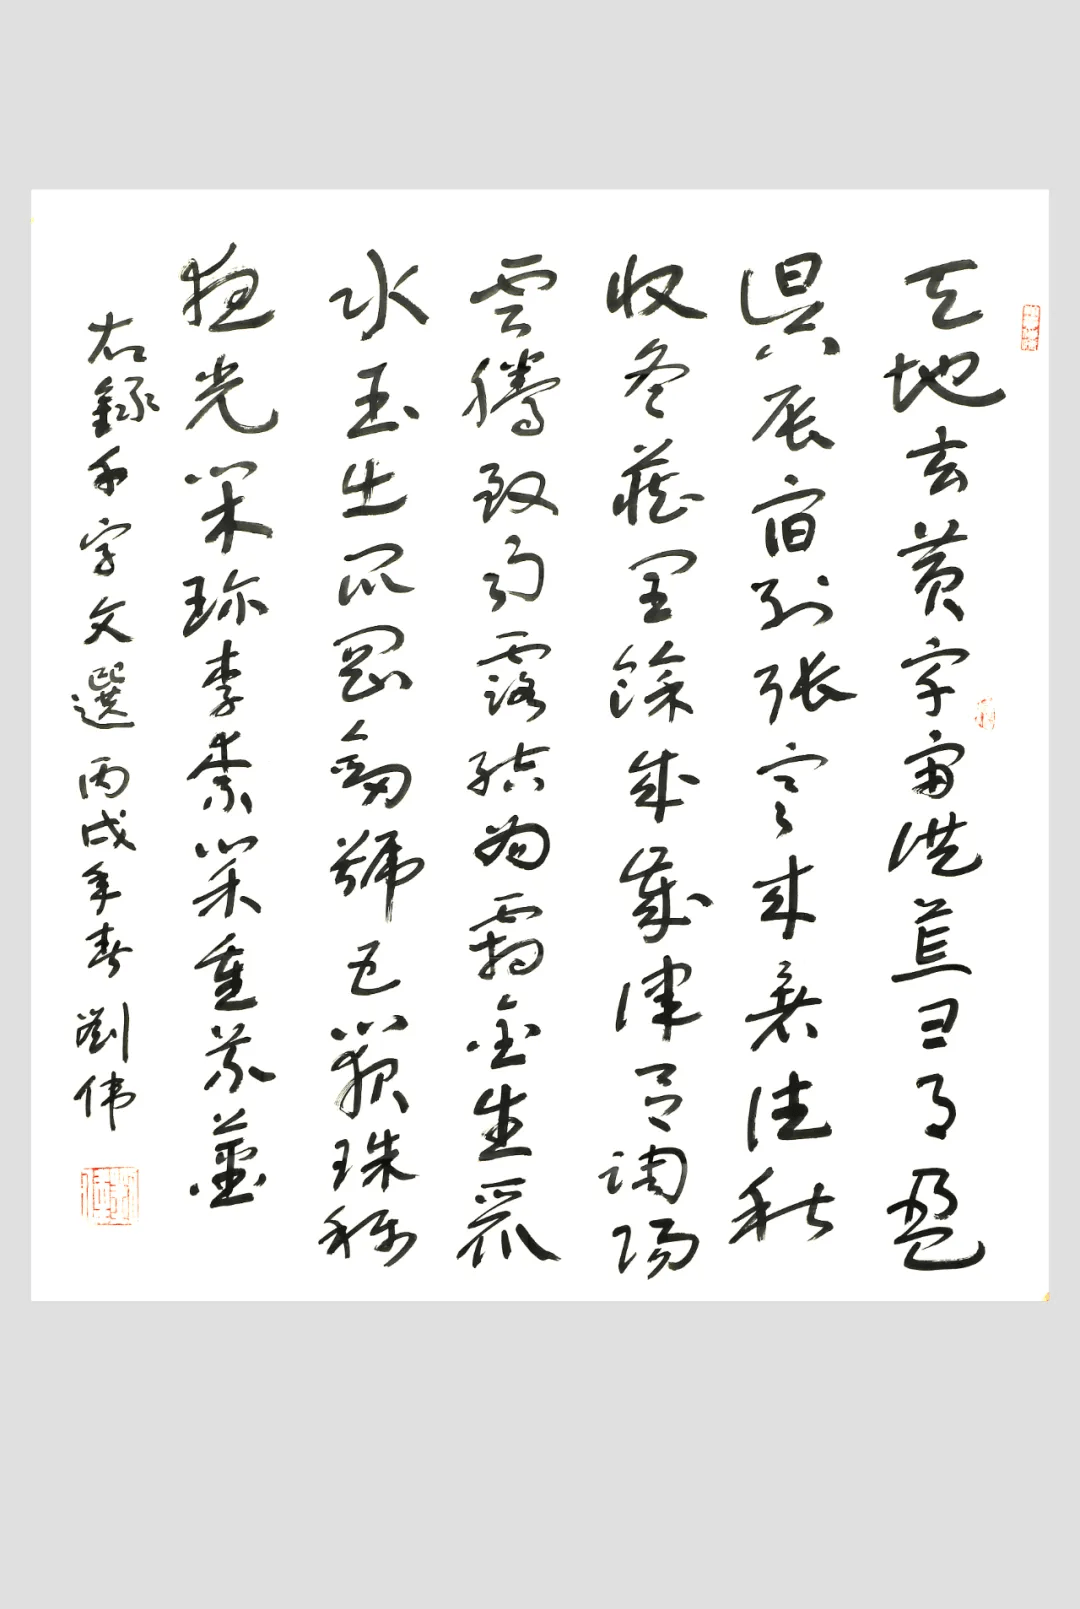 天地玄黄宇宙洪荒日月盈
昃辰宿列張寒来暑往秋
收冬藏閏餘成歲律吕調陽
雲騰致雨露結為霜金生麗
水玉出崑岡劍號巨闕珠稱
夜光菓珍李柰菜重芥薑
右録千字文選丙戌年春劉伟